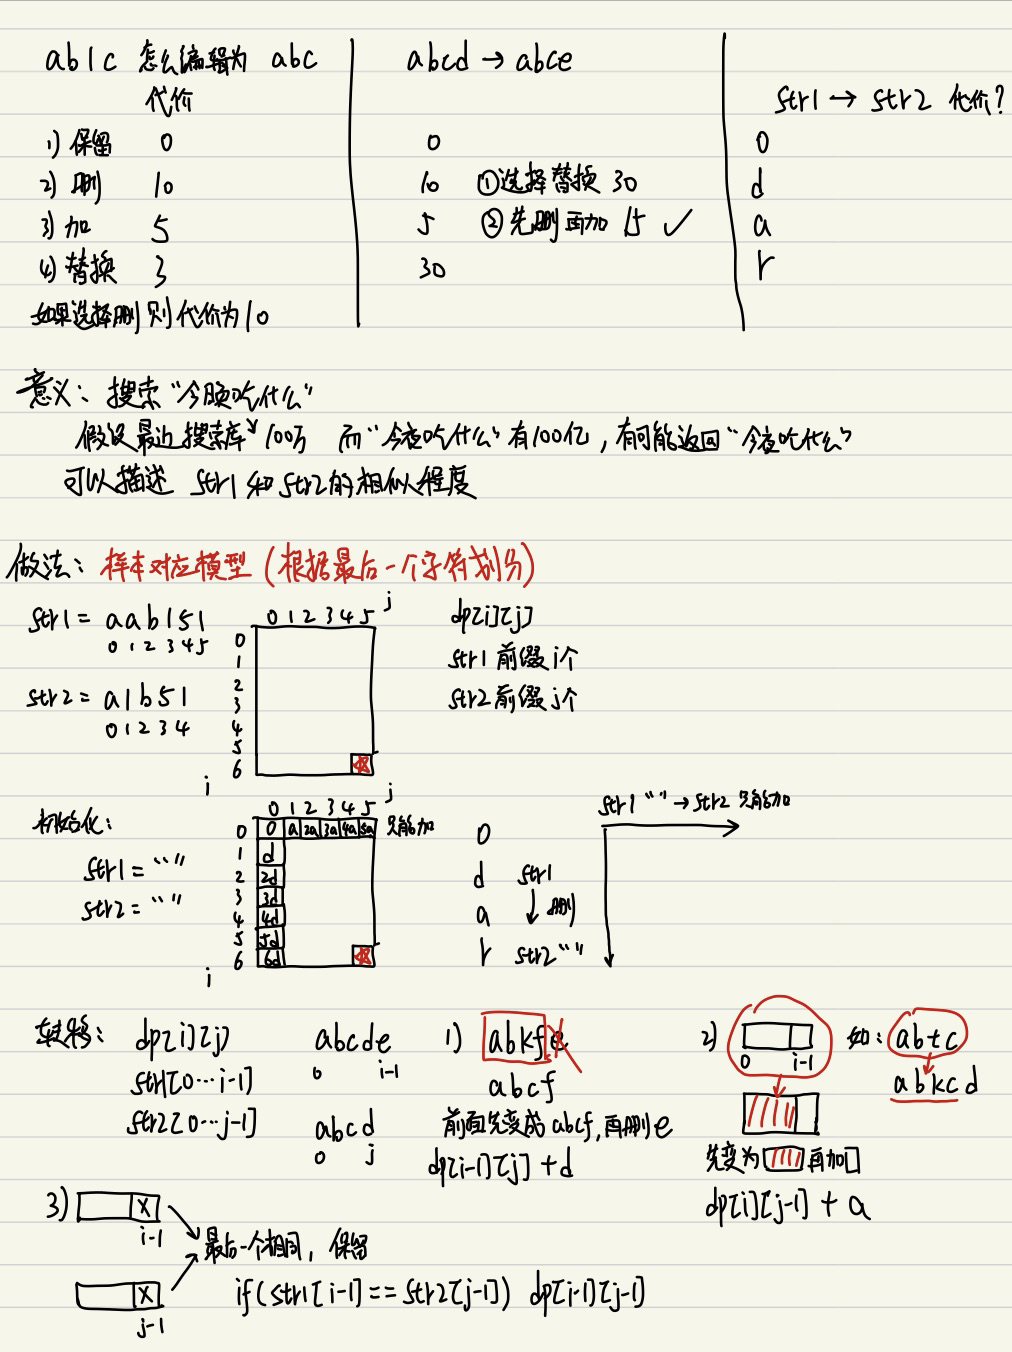 ab1c 怎么编辑为 abc
代价
1) 保留 0
2) 删 10
3) 加 5
4) 替换 3
如果选择删则代价为10
abcd → abce
0
10 ①选择替换 30
5 ②先删再加 15 ✓
30
str1 → str2 代价?
0
d
a
r
意义: 搜索 "今晚吃什么"
假设最近搜索库 100万 而 "今夜吃什么" 有100亿, 有可能返回 "今夜吃什么"
可以描述 str1 和 str2 的相似程度
做法: 样本对应模型 (根据最后一个字符划分)
str1 = aab151
0 1 2 3 4 5
str2 = a1b51
0 1 2 3 4
0 1 2 3 4 5 j
0
1
2
3
4
5
6
i
dp[i][j]
str1 前缀 i个
str2 前缀 j个
初始化:
str1 = ""
str2 = ""
0 1 2 3 4 5 j
0 0 a 2a 3a 4a 5a 只能加
1 d
2 2d
3 3d
4 4d
5 5d
6 6d
i
0
d
a
r
str1
↓ 删
str2 ""
str1 "" → str2 只能加
转移: dp[i][j]
str1[0…i-1]
str2[0…j-1]
abcde
0 i-1
abcd
0 j
1) abkfe
abcf
前面先变成 abcf, 再删 e
dp[i-1][j] + d
2)
0 i-1
如: abtc
abkcd
先变为 再加
dp[i][j-1] + a
3) x
i-1
x
j-1
最后一个相同, 保留
if (str1[i-1] == str2[j-1]) dp[i-1][j-1]